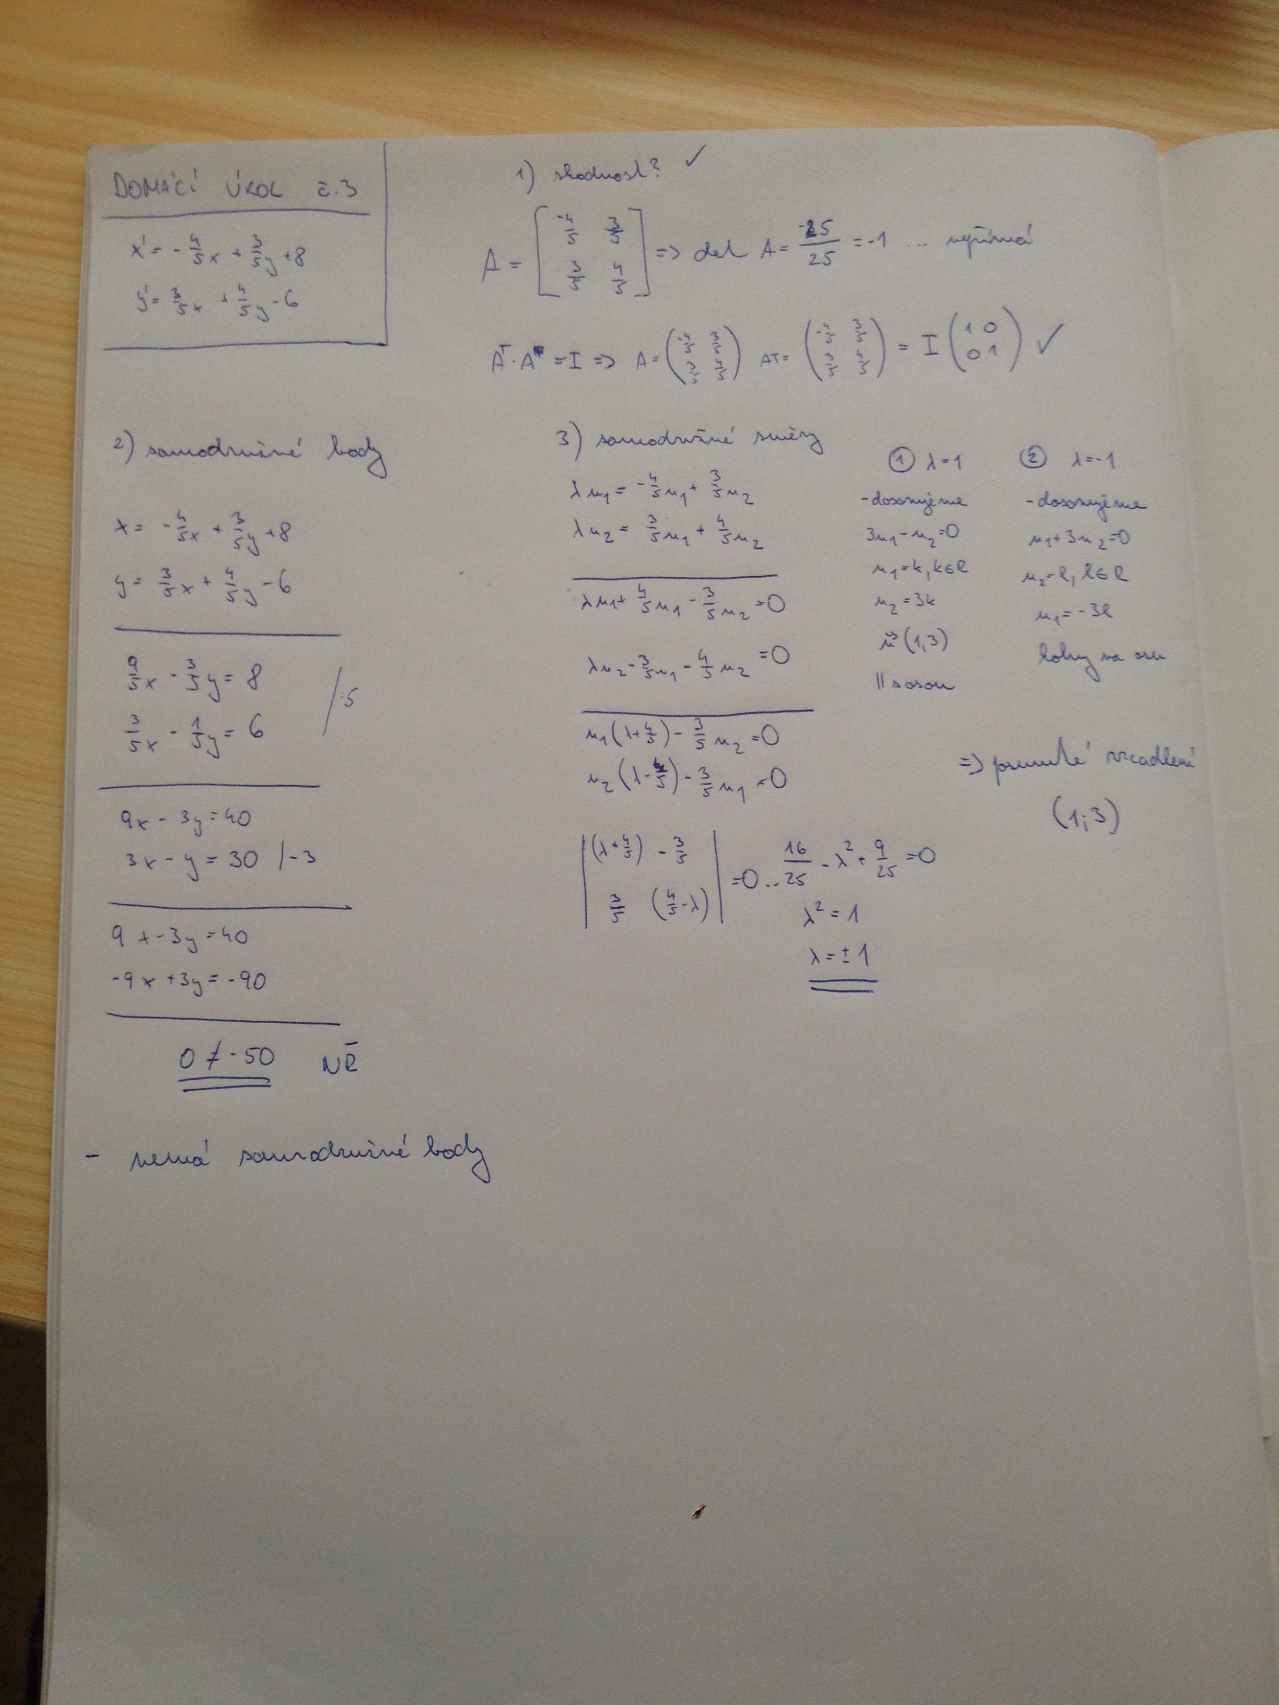 DOMÁCÍ ÚKOL č.3
x' = -4/5x + 3/5y + 8
y' = 3/5x + 4/5y - 6
1) shodnost? ✓
A = [-4/5 3/5; 3/5 4/5] => det A = -25/25 = -1 ... nepřímá
A^T · A = I => A = (-4/5 3/5; 3/5 4/5) AT = (-4/5 3/5; 3/5 4/5) = I (1 0; 0 1) ✓
2) samodružné body
x = -4/5x + 3/5y + 8
y = 3/5x + 4/5y - 6
9/5x - 3/5y = 8
3/5x - 1/5y = 6 /·5
9x - 3y = 40
3x - y = 30 /-3
9x - 3y = 40
-9x + 3y = -90
0 ≠ -50 NŘ
- nemá samodružné body
3) samodružné směry
λu1 = -4/5u1 + 3/5u2
λu2 = 3/5u1 + 4/5u2
λu1 + 4/5u1 - 3/5u2 = 0
λu2 - 3/5u1 - 4/5u2 = 0
u1(λ+4/5) - 3/5u2 = 0
u2(λ-4/5) - 3/5u1 = 0
|(λ+4/5) -3/5; 3/5 (4/5-λ)| = 0 .. 16/25 - λ² + 9/25 = 0
λ² = 1
λ = ±1
① λ=1
-dosazujeme
3u1-u2=0
u1=k, k∈R
u2=3k
u⃗(1,3)
|| s osou
② λ=-1
-dosazujeme
u1+3u2=0
u2=l, l∈R
u1=-3l
kolmý na osu
=> posunuté zrcadlení
(1;3)